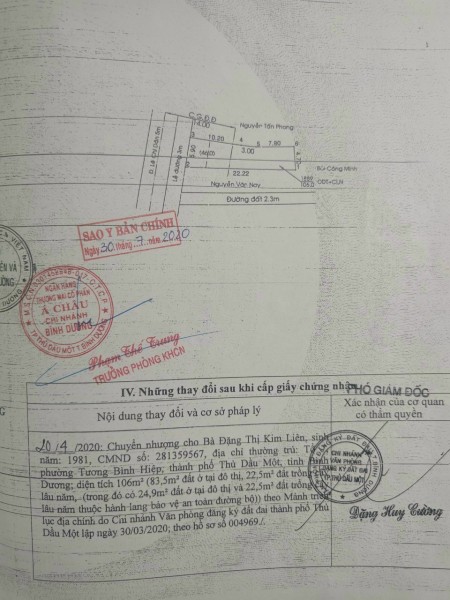 C.S.D.D
14.00
Nguyễn Tấn Phong
10.20
4
5
7.80
6
3.00
5.90
4.71
22.22
Bùi Công Minh
ODT+CLN
Nguyễn Văn Nay
Đường đất 2.5m
Lề đường 3m
SAO Y BẢN CHÍNH
Ngày 30 tháng 7 năm 2020
NGÂN HÀNG
THƯƠNG MẠI CỔ PHẦN
Á CHÂU
CHI NHÁNH
BÌNH DƯƠNG
TP THỦ DẦU MỘT T.BÌNH DƯƠNG
Phạm Thế Trung
TRƯỞNG PHÒNG KHCN
IV. Những thay đổi sau khi cấp giấy chứng nhận
Nội dung thay đổi và cơ sở pháp lý
PHÓ GIÁM ĐỐC
Xác nhận của cơ quan
có thẩm quyền
20/4/2020: Chuyển nhượng cho Bà Đặng Thị Kim Liên, sinh
năm: 1981, CMND số: 281359567, địa chỉ thường trú:
phường Tương Bình Hiệp, thành phố Thủ Dầu Một, tỉnh Bình
Dương; diện tích 106m² (83,5m² đất ở tại đô thị, 22,5m² đất trồng cây
lâu năm, (trong đó có 24,9m² đất ở tại đô thị và 22,5m² đất trồng cây
lâu năm thuộc hành lang bảo vệ an toàn đường bộ)) theo Mảnh trích
lục địa chính do Chi nhánh Văn phòng đăng ký đất đai thành phố Thủ
Dầu Một lập ngày 30/03/2020; theo hồ sơ số 004969./.
CHI NHÁNH
VĂN PHÒNG
ĐĂNG KÝ ĐẤT ĐAI
TP.THỦ DẦU MỘT
Đặng Huy Cường